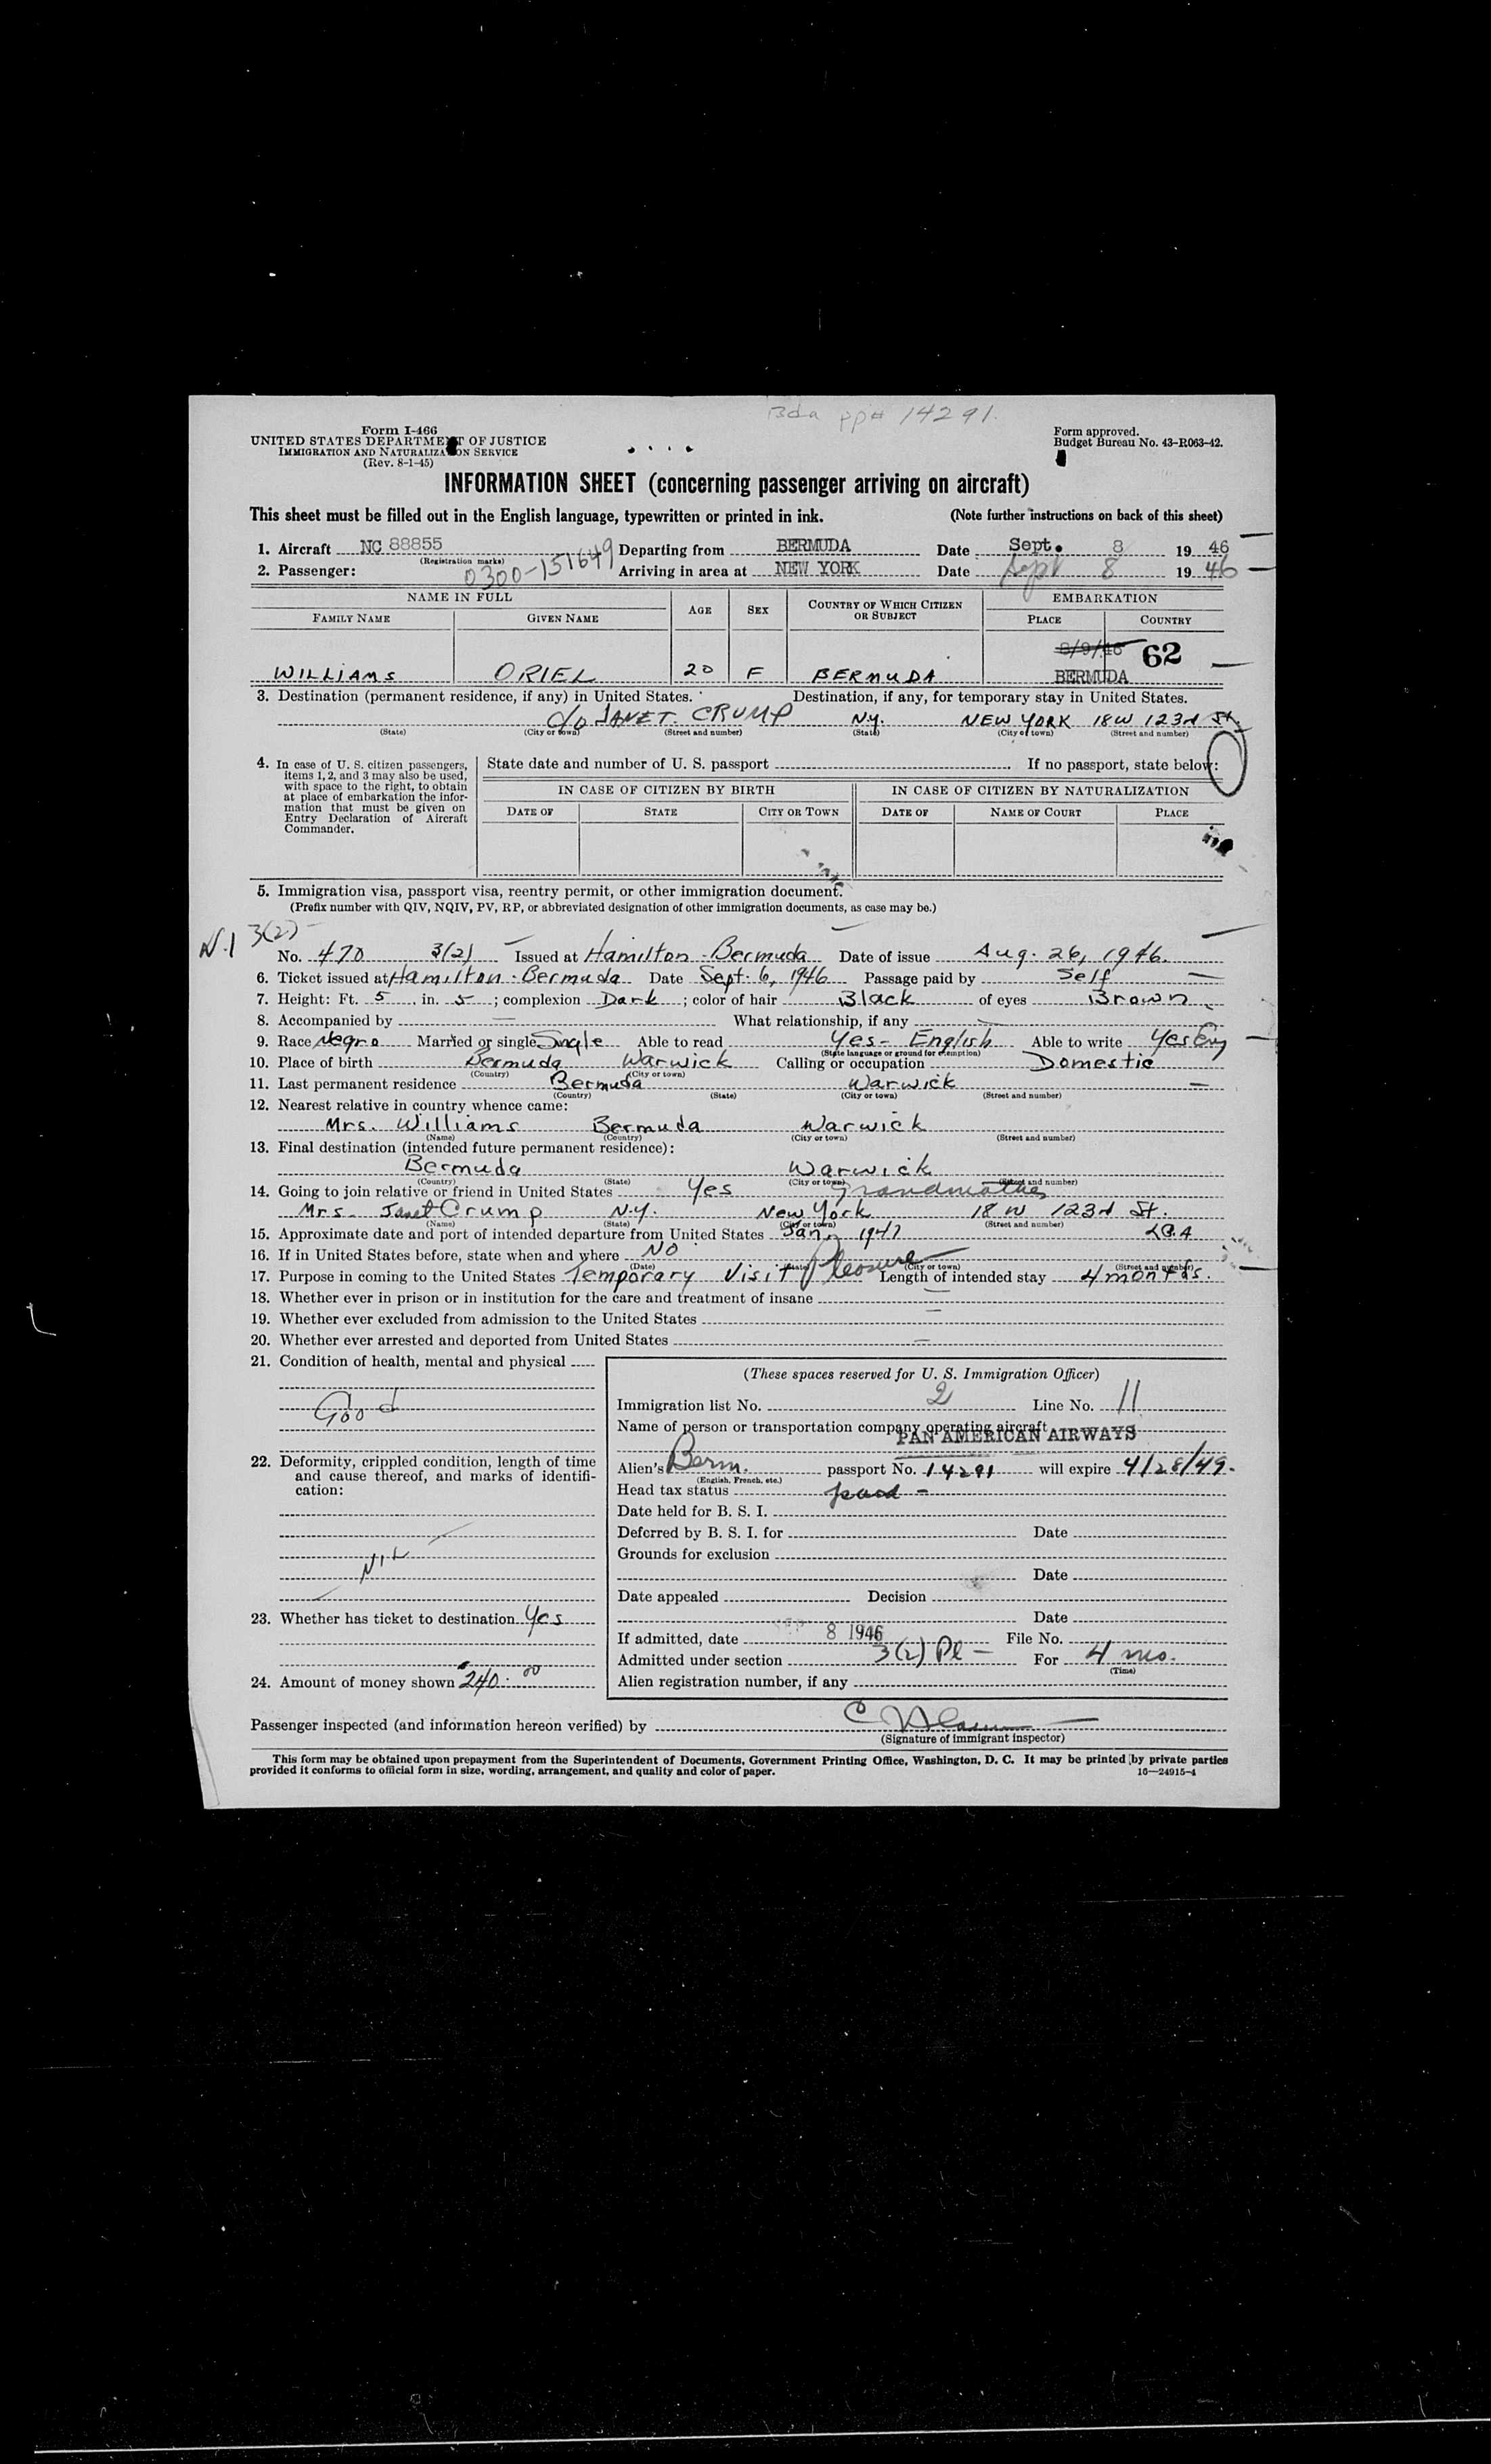 Bda pp# 14291.
Form I-466
UNITED STATES DEPARTMENT OF JUSTICE
IMMIGRATION AND NATURALIZATION SERVICE
(Rev. 8-1-45)
Form approved.
Budget Bureau No. 43-R063-42.
INFORMATION SHEET (concerning passenger arriving on aircraft)
This sheet must be filled out in the English language, typewritten or printed in ink. (Note further instructions on back of this sheet)
1. Aircraft NC 88855 Departing from BERMUDA Date Sept. 8 1946
(Registration marks)
2. Passenger: 0300-151649 Arriving in area at NEW YORK Date Sept 8 1946
NAME IN FULL AGE SEX COUNTRY OF WHICH CITIZEN OR SUBJECT EMBARKATION
FAMILY NAME GIVEN NAME PLACE COUNTRY
8/9/46 62
WILLIAMS ORIEL 20 F BERMUDA BERMUDA
3. Destination (permanent residence, if any) in United States. Destination, if any, for temporary stay in United States.
c/o JANET. CRUMP N.y. NEW YORK 18 W 123rd St.
(State) (City or town) (Street and number) (State) (City or town) (Street and number)
4. In case of U. S. citizen passengers, items 1, 2, and 3 may also be used, with space to the right, to obtain at place of embarkation the information that must be given on Entry Declaration of Aircraft Commander.
State date and number of U. S. passport If no passport, state below:
IN CASE OF CITIZEN BY BIRTH IN CASE OF CITIZEN BY NATURALIZATION
DATE OF STATE CITY OR TOWN DATE OF NAME OF COURT PLACE
5. Immigration visa, passport visa, reentry permit, or other immigration document.
(Prefix number with QIV, NQIV, PV, RP, or abbreviated designation of other immigration documents, as case may be.)
N.I 3(2)
No. 470 3(2) Issued at Hamilton - Bermuda Date of issue Aug. 26, 1946.
6. Ticket issued at Hamilton - Bermuda Date Sept. 6, 1946 Passage paid by Self
7. Height: Ft. 5 in. 5 ; complexion Dark ; color of hair Black of eyes Brown
8. Accompanied by — What relationship, if any —
9. Race Negro Married or single Single Able to read Yes - English Able to write Yes Eng
(State language or ground for exemption)
10. Place of birth Bermuda Warwick Calling or occupation Domestic
(Country) (City or town)
11. Last permanent residence Bermuda Warwick —
(Country) (State) (City or town) (Street and number)
12. Nearest relative in country whence came:
Mrs. Williams Bermuda Warwick
(Name) (Country) (City or town) (Street and number)
13. Final destination (intended future permanent residence):
Bermuda Warwick
(Country) (State) (City or town) (Street and number)
14. Going to join relative or friend in United States Yes Grandmother
Mrs. Janet Crump N.y. New York 18 W 123rd St.
(Name) (State) (City or town) (Street and number)
15. Approximate date and port of intended departure from United States Jan, 1947 LGA
16. If in United States before, state when and where NO
(Date) (State) (City or town) (Street and number)
17. Purpose in coming to the United States Temporary Visit Pleasure Length of intended stay 4 months.
18. Whether ever in prison or in institution for the care and treatment of insane —
19. Whether ever excluded from admission to the United States —
20. Whether ever arrested and deported from United States —
21. Condition of health, mental and physical
Good
22. Deformity, crippled condition, length of time and cause thereof, and marks of identification:
NIL
23. Whether has ticket to destination Yes
24. Amount of money shown 240.00
(These spaces reserved for U. S. Immigration Officer)
Immigration list No. 2 Line No. 11
Name of person or transportation company operating aircraft
PAN AMERICAN AIRWAYS
Alien's Berm. passport No. 14291 will expire 4/28/49.
(English, French, etc.)
Head tax status paid -
Date held for B. S. I.
Deferred by B. S. I. for Date
Grounds for exclusion
Date
Date appealed Decision
Date
If admitted, date SEP 8 1946 File No.
Admitted under section 3(2) Pl - For 4 mo.
(Time)
Alien registration number, if any
Passenger inspected (and information hereon verified) by
(Signature of immigrant inspector)
This form may be obtained upon prepayment from the Superintendent of Documents, Government Printing Office, Washington, D. C. It may be printed by private parties
provided it conforms to official form in size, wording, arrangement, and quality and color of paper. 16—24915-4